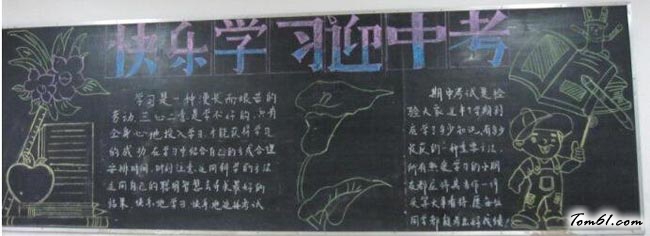 快乐学习迎中考
学习是一种漫长而艰苦的
劳动,三心二意是学不好的,只有
全身心地投入学习,才能获得学习
的成功,在学习中结合自己的
安排时间,时刻注意,运用科学的方法
运用自己的聪明智慧去争取最好的
结果,快乐地学习,快乐地迎接考试
期中考试是检
验大家这半个学期到
底学了多少知识,有多少
收获的一种重要方法.
所有热爱学习的小朋
友都应
同学都能考出好成绩!
Tom61.com